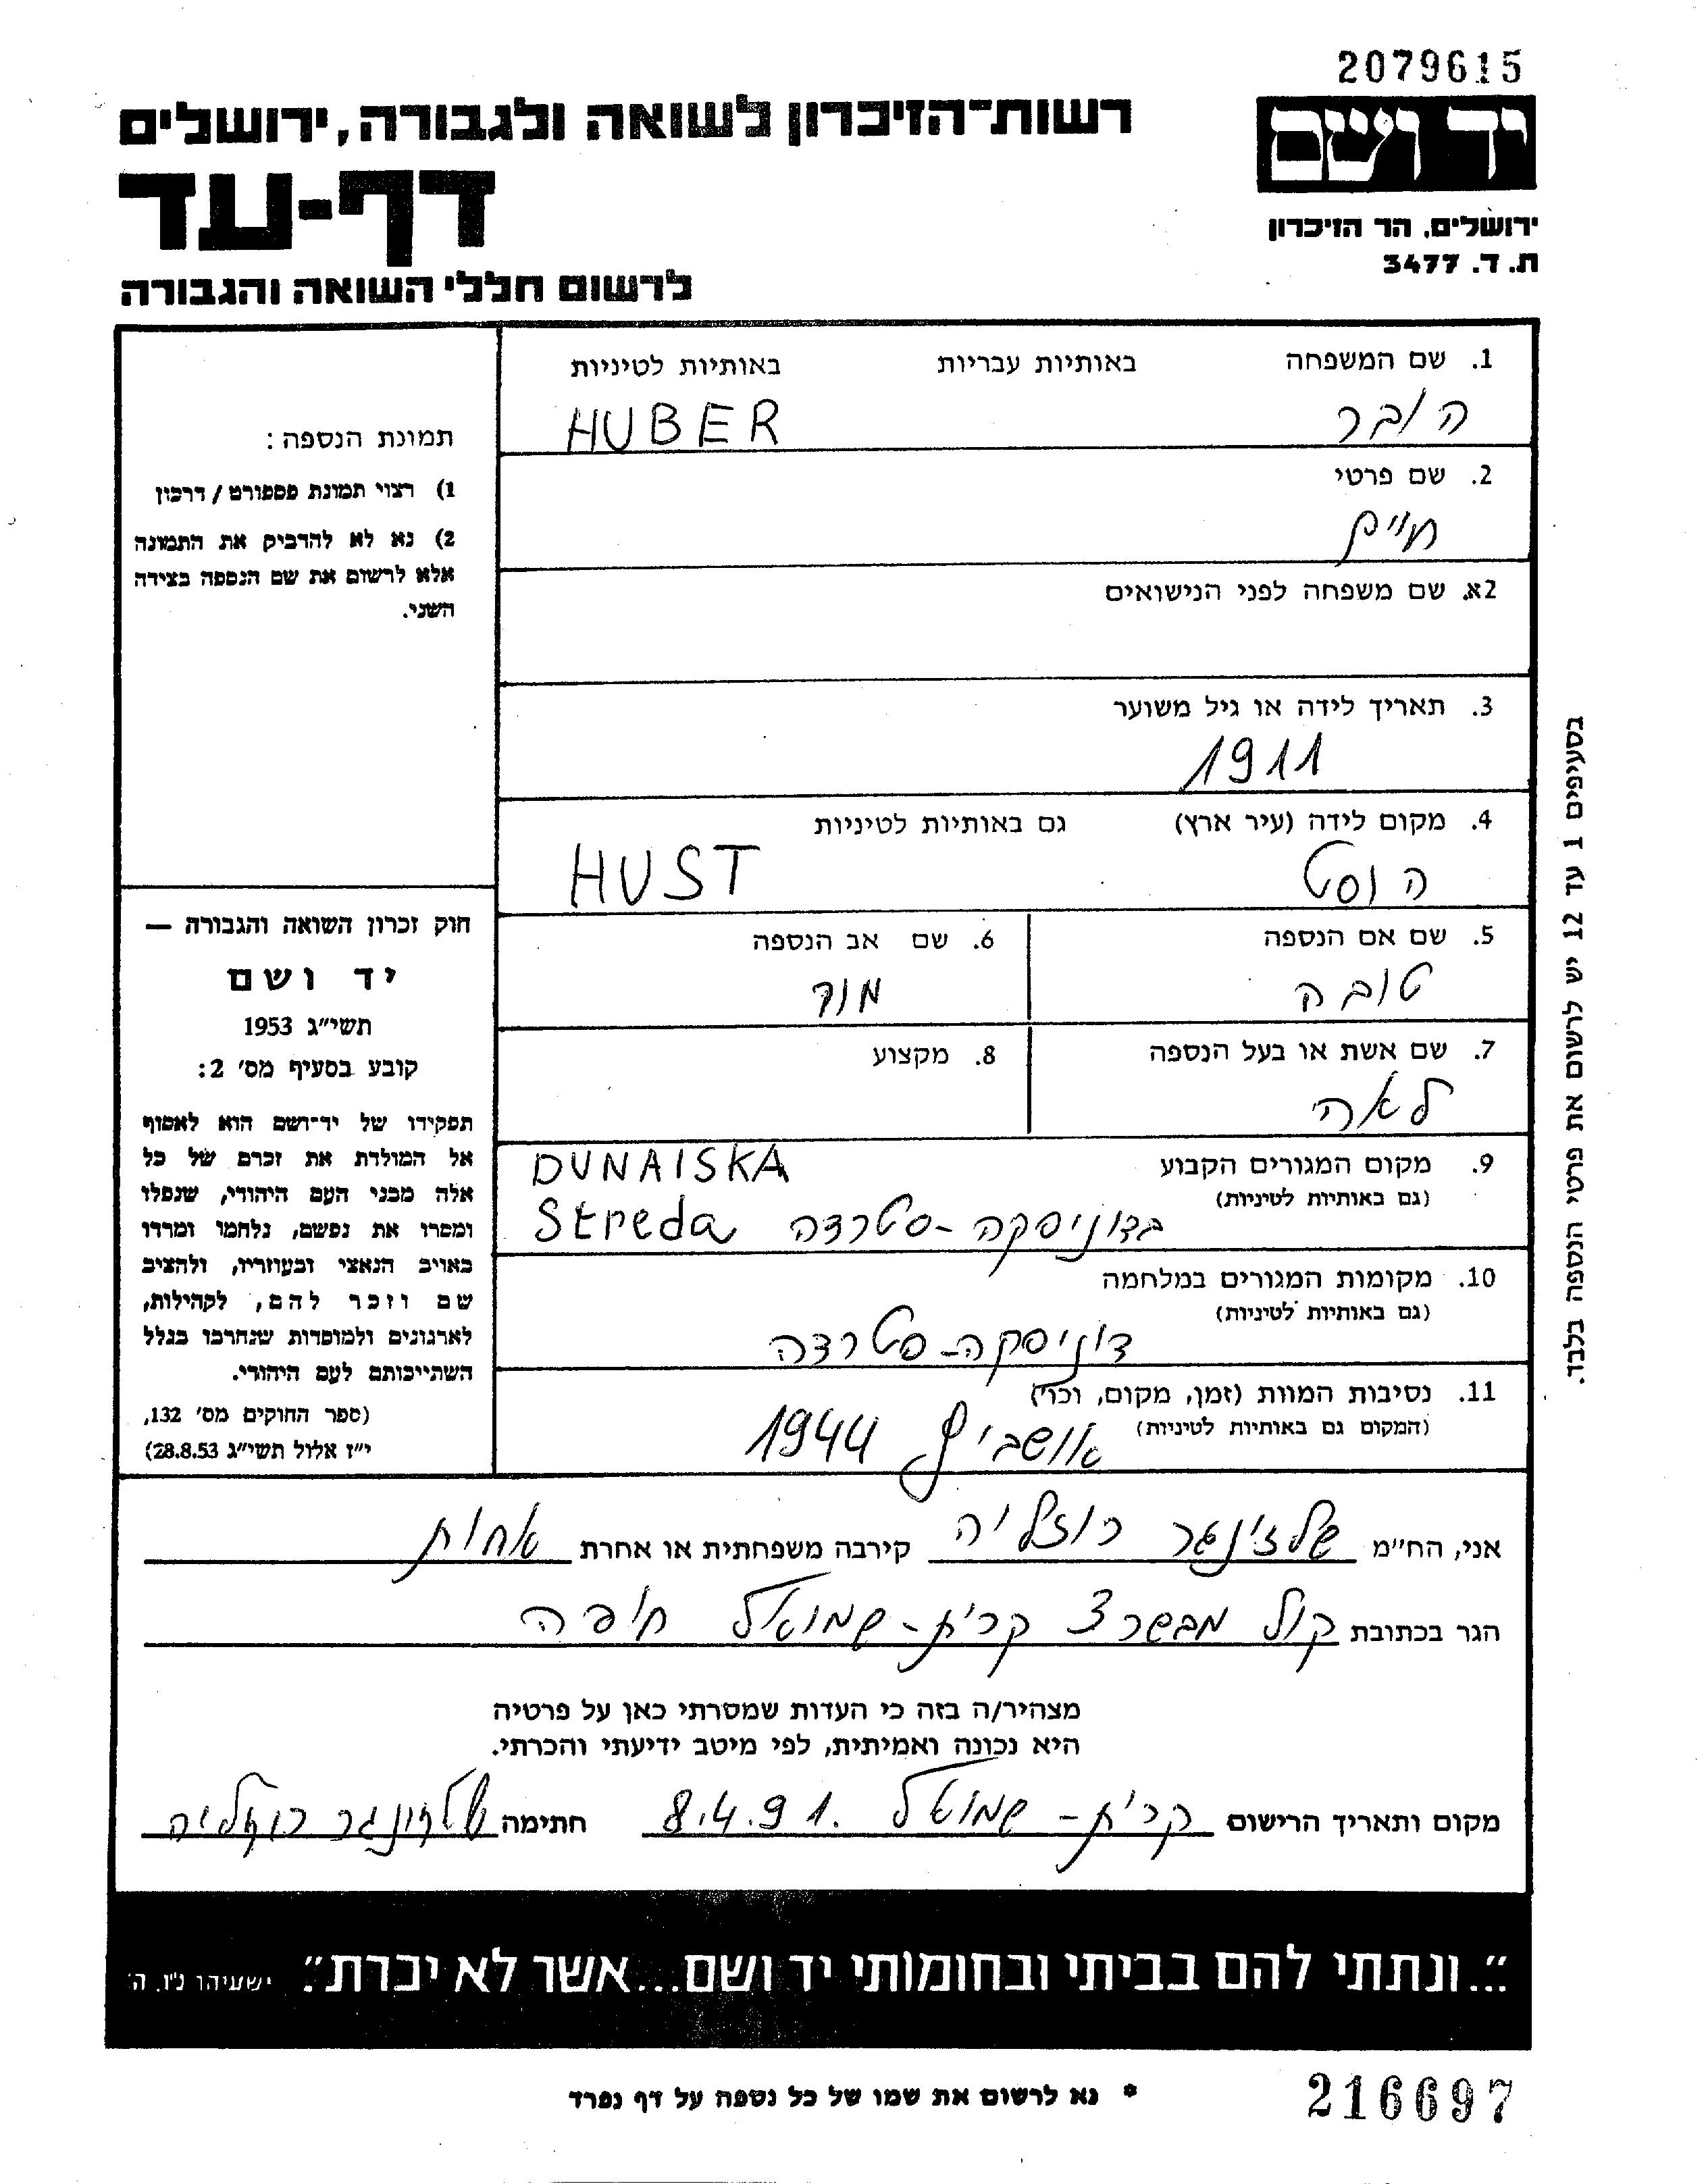 2079615
יד ושם
ירושלים, הר הזיכרון
ת. ד. 3477
רשות-הזיכרון לשואה ולגבורה, ירושלים
דף-עד
לרשום חללי השואה והגבורה
1. שם המשפחה באותיות עבריות באותיות לטיניות
הובר HUBER
2. שם פרטי
חיים
2א. שם משפחה לפני הנישואים
3. תאריך לידה או גיל משוער
1911
4. מקום לידה (עיר ארץ) גם באותיות לטיניות
הוסט HUST
5. שם אם הנספה 6. שם אב הנספה
טובה מור
7. שם אשת או בעל הנספה 8. מקצוע
לאה
9. מקום המגורים הקבוע DUNAISKA
(גם באותיות לטיניות)
בדוניסקה-סטרדה Streda
10. מקומות המגורים במלחמה
(גם באותיות לטיניות)
דוניסקה-סטרדה
11. נסיבות המוות (זמן, מקום, וכו')
(המקום גם באותיות לטיניות)
אושביץ 1944
תמונת הנספה:
1) רצוי תמונת פספורט / דרכון
2) נא לא להדביק את התמונה
אלא לרשום את שם הנספה בצידה
השני.
חוק זכרון השואה והגבורה —
יד ושם
תשי"ג 1953
קובע בסעיף מס' 2:
תפקידו של יד-ושם הוא לאסוף
אל המולדת את זכרם של כל
אלה מבני העם היהודי, שנפלו
ומסרו את נפשם, נלחמו ומרדו
באויב הנאצי ובעוזריו, ולהציב
שם וזכר להם, לקהילות,
לארגונים ולמוסדות שנחרבו בגלל
השתייכותם לעם היהודי.
(ספר החוקים מס' 132,
י"ז אלול תשי"ג 28.8.53)
בסעיפים 1 עד 12 יש לרשום את פרטי הנספה בלבד.
אני, הח"מ שלזינגר רוזליה קירבה משפחתית או אחרת אחות
הגר בכתובת קול מבשר 3 קרית-שמואל חיפה
מצהיר/ה בזה כי העדות שמסרתי כאן על פרטיה
היא נכונה ואמיתית, לפי מיטב ידיעתי והכרתי.
מקום ותאריך הרישום קרית-שמואל 8.4.91. חתימה שלזינגר רוזליה
"...ונתתי להם בביתי ובחומותי יד ושם...אשר לא יכרת." ישעיהו נ"ו, ה'
* נא לרשום את שמו של כל נספה על דף נפרד
216697